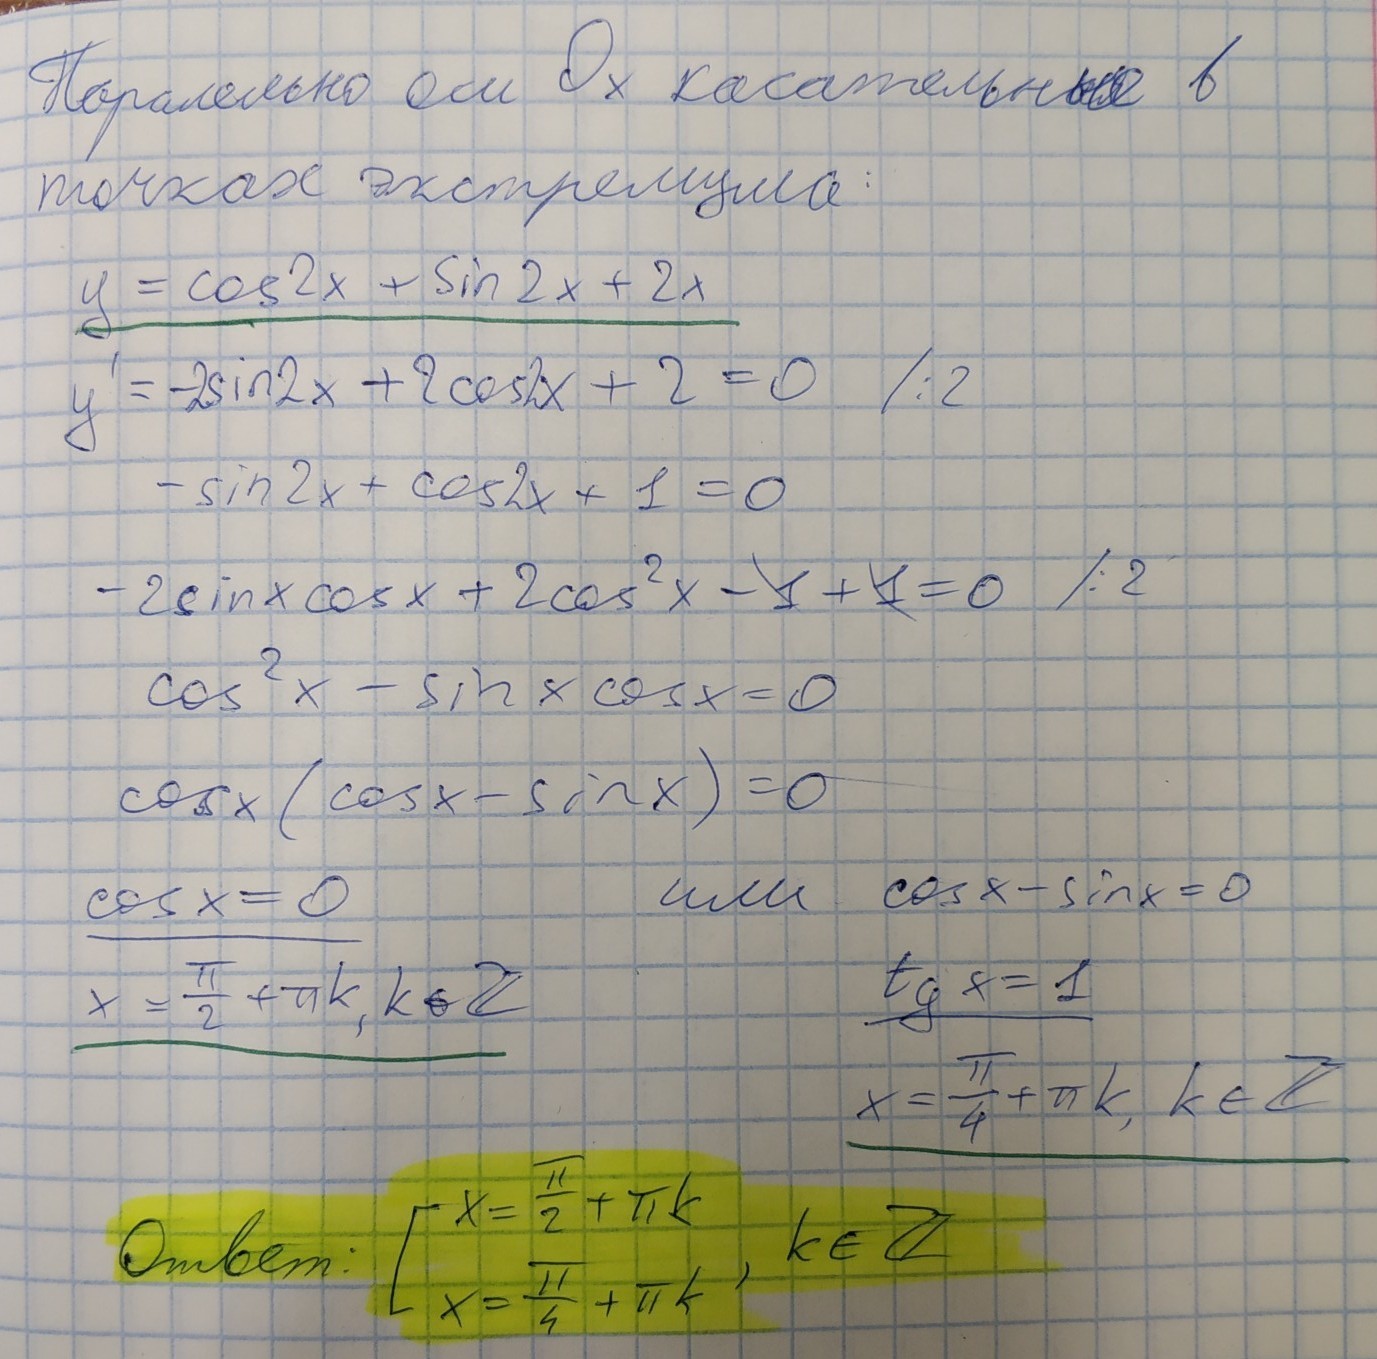 Паралельно оси Ox касательные в
точках экстремума:
y = cos2x + sin2x + 2x
y' = -2sin2x + 2cos2x + 2 = 0 /:2
-sin2x + cos2x + 1 = 0
-2sinxcosx + 2cos²x - 1 + 1 = 0 /:2
cos²x - sinxcosx = 0
cosx(cosx - sinx) = 0
cosx = 0 или cosx - sinx = 0
x = π/2 + πk, k∈ℤ tg x = 1
x = π/4 + πk, k∈ℤ
Ответ: [ x = π/2 + πk
x = π/4 + πk , k∈ℤ